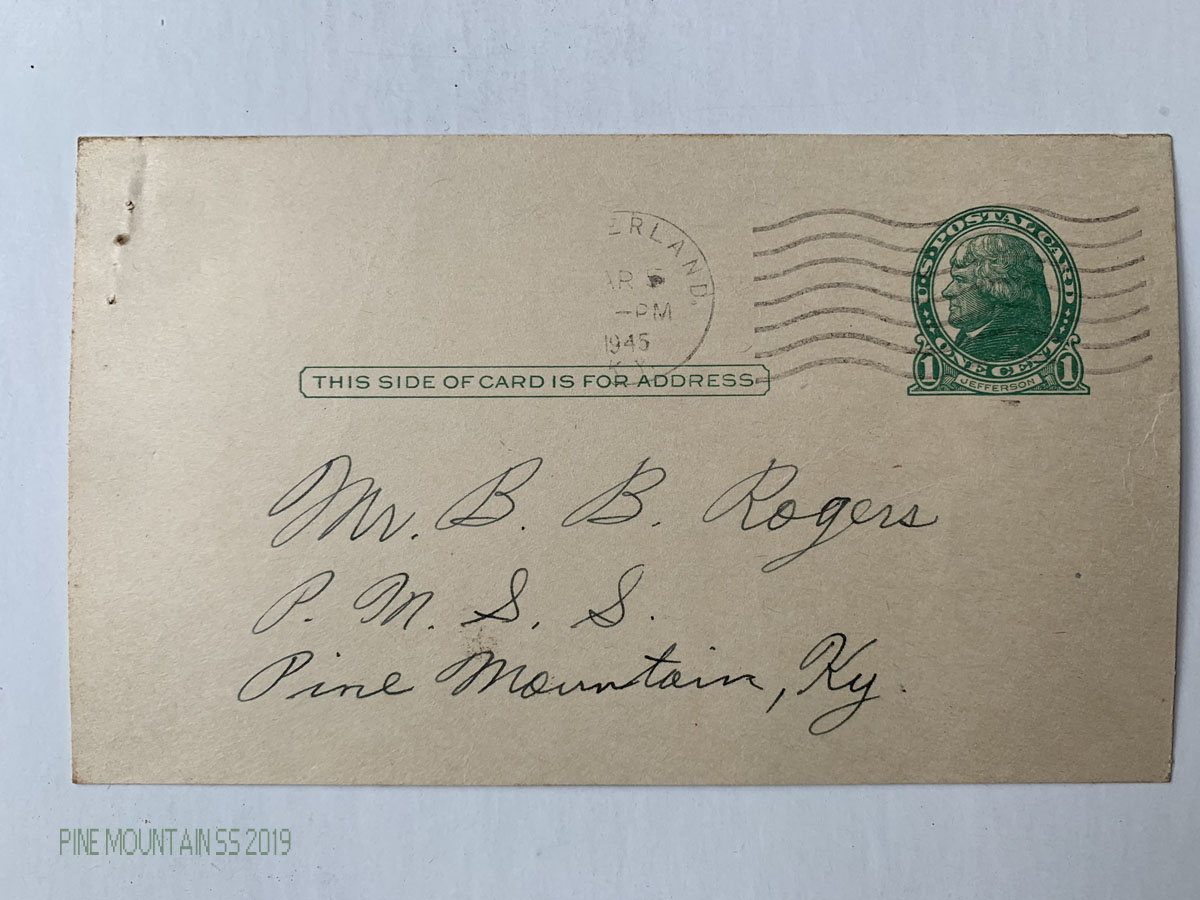 ERLAND.
AR 5
-PM
1945
KY.
U.S. POSTAL CARD
ONE CENT
1 JEFFERSON 1
THIS SIDE OF CARD IS FOR ADDRESS
Mr. B. B. Rogers
P. M. S. S.
Pine Mountain, Ky.
PINE MOUNTAIN SS 2019